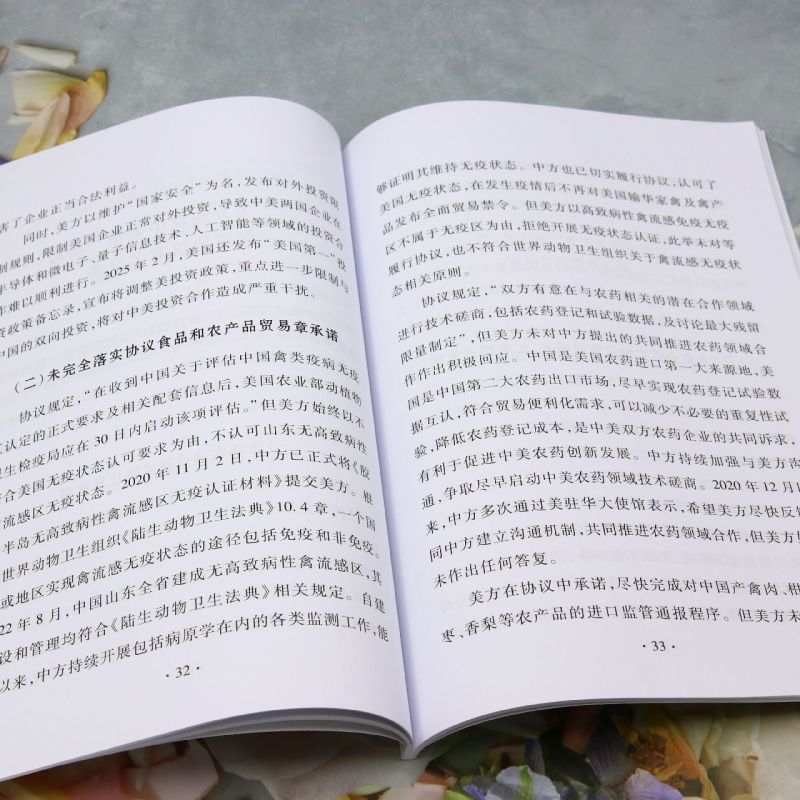 害了企业正当合法利益。
同时,美方以维护“国家安全”为名,发布对外投资限
制规则,限制美国企业正常对外投资,导致中美两国企业在
半导体和微电子、量子信息技术、人工智能等领域的投资合
作难以顺利进行。2025年2月,美国还发布“美国第一”投
资政策备忘录,宣布将调整美投资政策,重点进一步限制与
中国的双向投资,将对中美投资合作造成严重干扰。
(二)未完全落实协议食品和农产品贸易章承诺
协议规定,“在收到中国关于评估中国禽类疫病无疫
认定的正式要求及相关配套信息后,美国农业部动植物
卫生检疫局应在30日内启动该项评估。”但美方始终以不
符合美国无疫状态认可要求为由,不认可山东无高致病性
禽流感区无疫状态。2020年11月2日,中方已正式将《胶
东半岛无高致病性禽流感区无疫认证材料》提交美方。根
世界动物卫生组织《陆生动物卫生法典》10.4章,一个国
或地区实现禽流感无疫状态的途径包括免疫和非免疫。
22年8月,中国山东全省建成无高致病性禽流感区,其
设和管理均符合《陆生动物卫生法典》相关规定。自建
以来,中方持续开展包括病原学在内的各类监测工作,能
·32·
够证明其维持无疫状态。中方也已切实履行协议,认可了
美国无疫状态,在发生疫情后不再对美国输华家禽及禽产
品发布全面贸易禁令。但美方以高致病性禽流感免疫无疫
区不属于无疫区为由,拒绝开展无疫状态认证,此举未对等
履行协议,也不符合世界动物卫生组织关于禽流感无疫状
态相关原则。
协议规定,“双方有意在与农药相关的潜在合作领域
进行技术磋商,包括农药登记和试验数据,及讨论最大残留
限量制定”,但美方未对中方提出的共同推进农药领域合
作作出积极回应。中国是美国农药进口第一大来源地,美
国是中国第二大农药出口市场,尽早实现农药登记试验数
据互认,符合贸易便利化需求,可以减少不必要的重复性试
验,降低农药登记成本,是中美双方农药企业的共同诉求,
有利于促进中美农药创新发展。中方持续加强与美方沟
通,争取尽早启动中美农药领域技术磋商。2020年12月以
来,中方多次通过美驻华大使馆表示,希望美方尽快反馈
同中方建立沟通机制,共同推进农药领域合作,但美方
未作出任何答复。
美方在协议中承诺,尽快完成对中国产禽肉、柑
枣、香梨等农产品的进口监管通报程序。但美方未
·33·